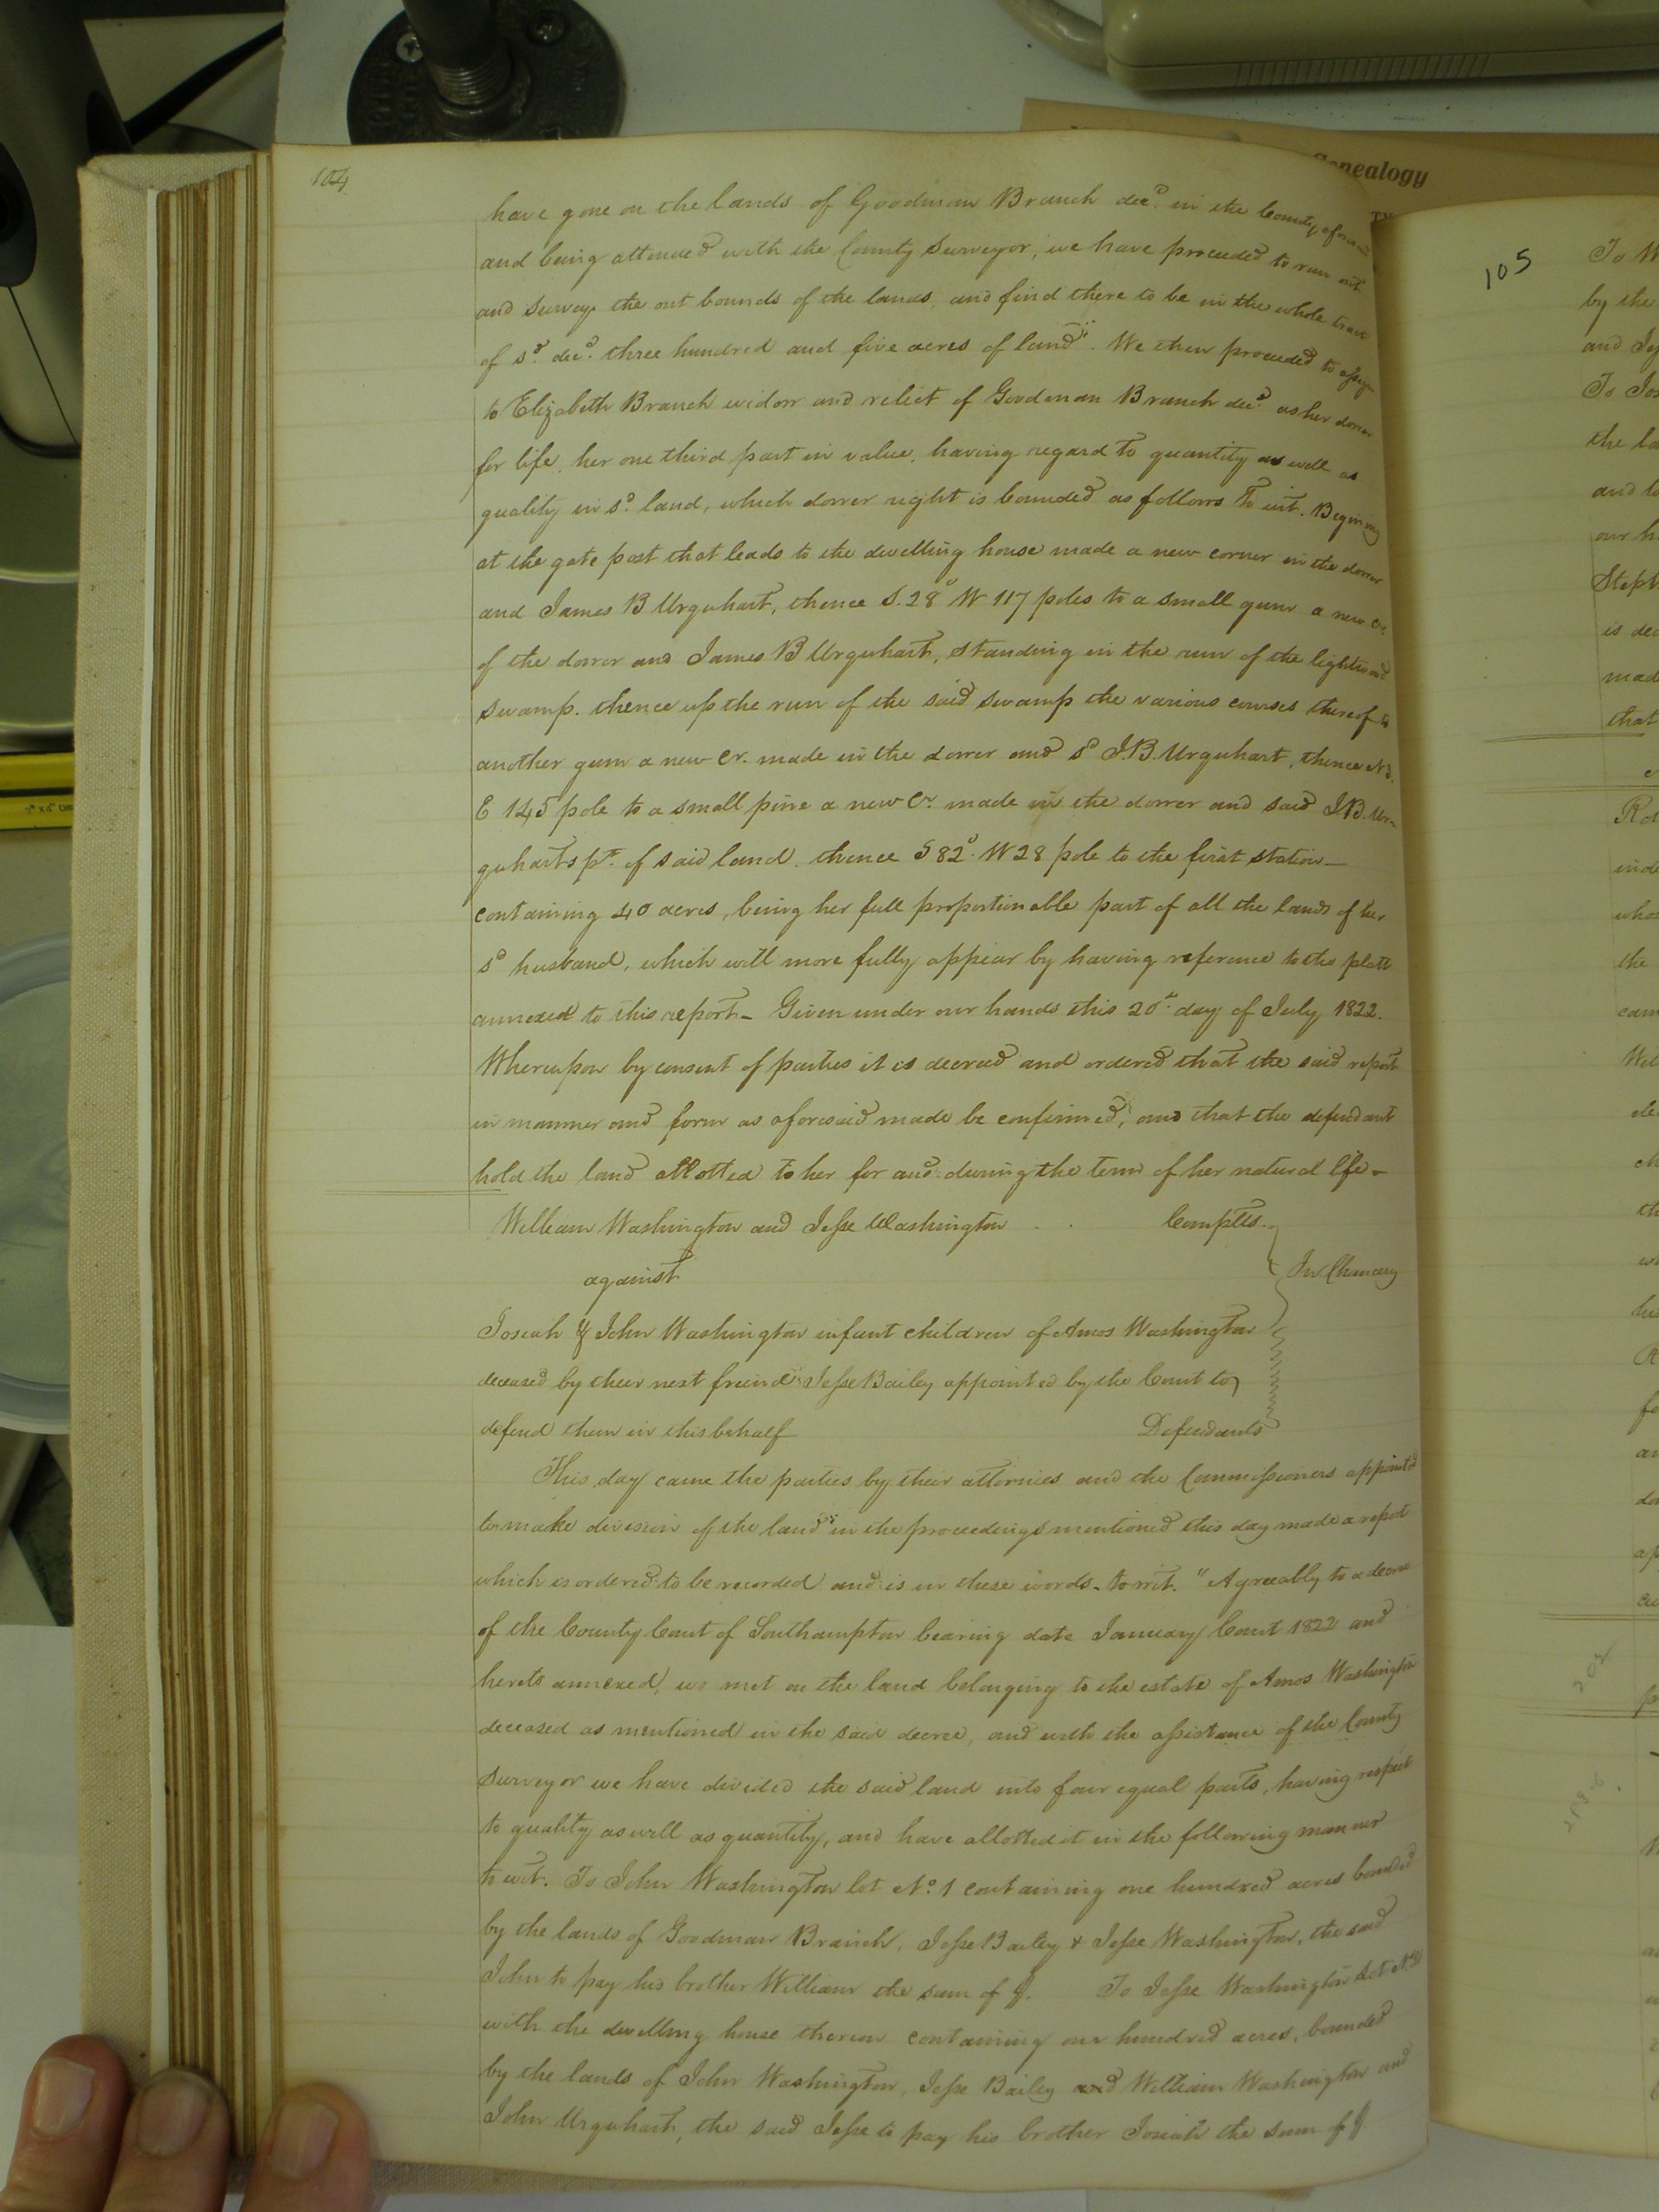 104
have gone on the lands of Goodman Branch decd. in the County aforesaid
and being attended with the County Surveyor, we have proceeded to run out
and survey the out bounds of the lands, and find there to be in the whole tract
of sd. decd. three hundred and five acres of land. We then proceeded to assign
to Elizabeth Branch widow and relict of Goodman Branch decd. as her dower
for life, her one third part in value, having regard to quantity as well as
quality in sd. land, which dower right is bounded as follows To wit. Begining
at the gate post that leads to the dwelling house made a new corner in the dower
and James B Urquhart, thence S. 28° W 117 poles to a small gum a new Cr.
of the dower and James B Urquhart, standing in the run of the lightwood
swamp. thence up the run of the said swamp the various courses thereof to
another gum a new Cr. made in the dower and sd J.B. Urquhart, thence
E 145 pole to a small pine a new Cr. made in the dower and said J.B. Ur-
quharts pt. of said land. thence S 82° W 28 pole to the first station—
containing 40 acres, being her full proportionable part of all the lands of her
sd husband, which will more fully appear by having reference to the platt
annexed to this report— Given under our hands this 20t. day of July 1822.
Whereupon by consent of parties it is decreed and ordered that the said report
in manner and form as aforesaid made be confirmed, and that the defendant
hold the land allotted to her for and during the term of her natural life—
William Washington and Jesse Washington . . Complts.
against In Chancery
Josiah & John Washington infant children of Amos Washington
deceased by their next friend Jesse Bailey appointed by the Court to
defend them in this behalf Defendants
This day came the parties by their attornies and the Commissioners appointed
to make division of the land in the proceedings mentioned this day made a report
which is ordered to be recorded and is in these words. towit. "Agreeably to a decree
of the County Court of Southampton bearing date January Court 1822 and
hereto annexed, we met on the land belonging to the estate of Amos Washington
deceased as mentioned in the said decree, and with the assistance of the County
Surveyor we have divided the said land into four equal parts, having respect
to quality as well as quantity, and have allotted it in the following manner
to wit. To John Washington lot No. 1 containing one hundred acres bounded
by the lands of Goodman Branch, Jesse Bailey & Jesse Washington, the said
John to pay his brother William the sum of $. To Jesse Washington Lot No.
with the dwelling house thereon containing one hundred acres, bounded
by the lands of John Washington, Jesse Bailey and William Washington and
John Urquhart, the said Jesse to pay his brother Josiah the sum of $
Genealogy
105
To W
by the
and Je
To Jos
the la
and
our h
Steph
is dec
made
that
whos
the
cam